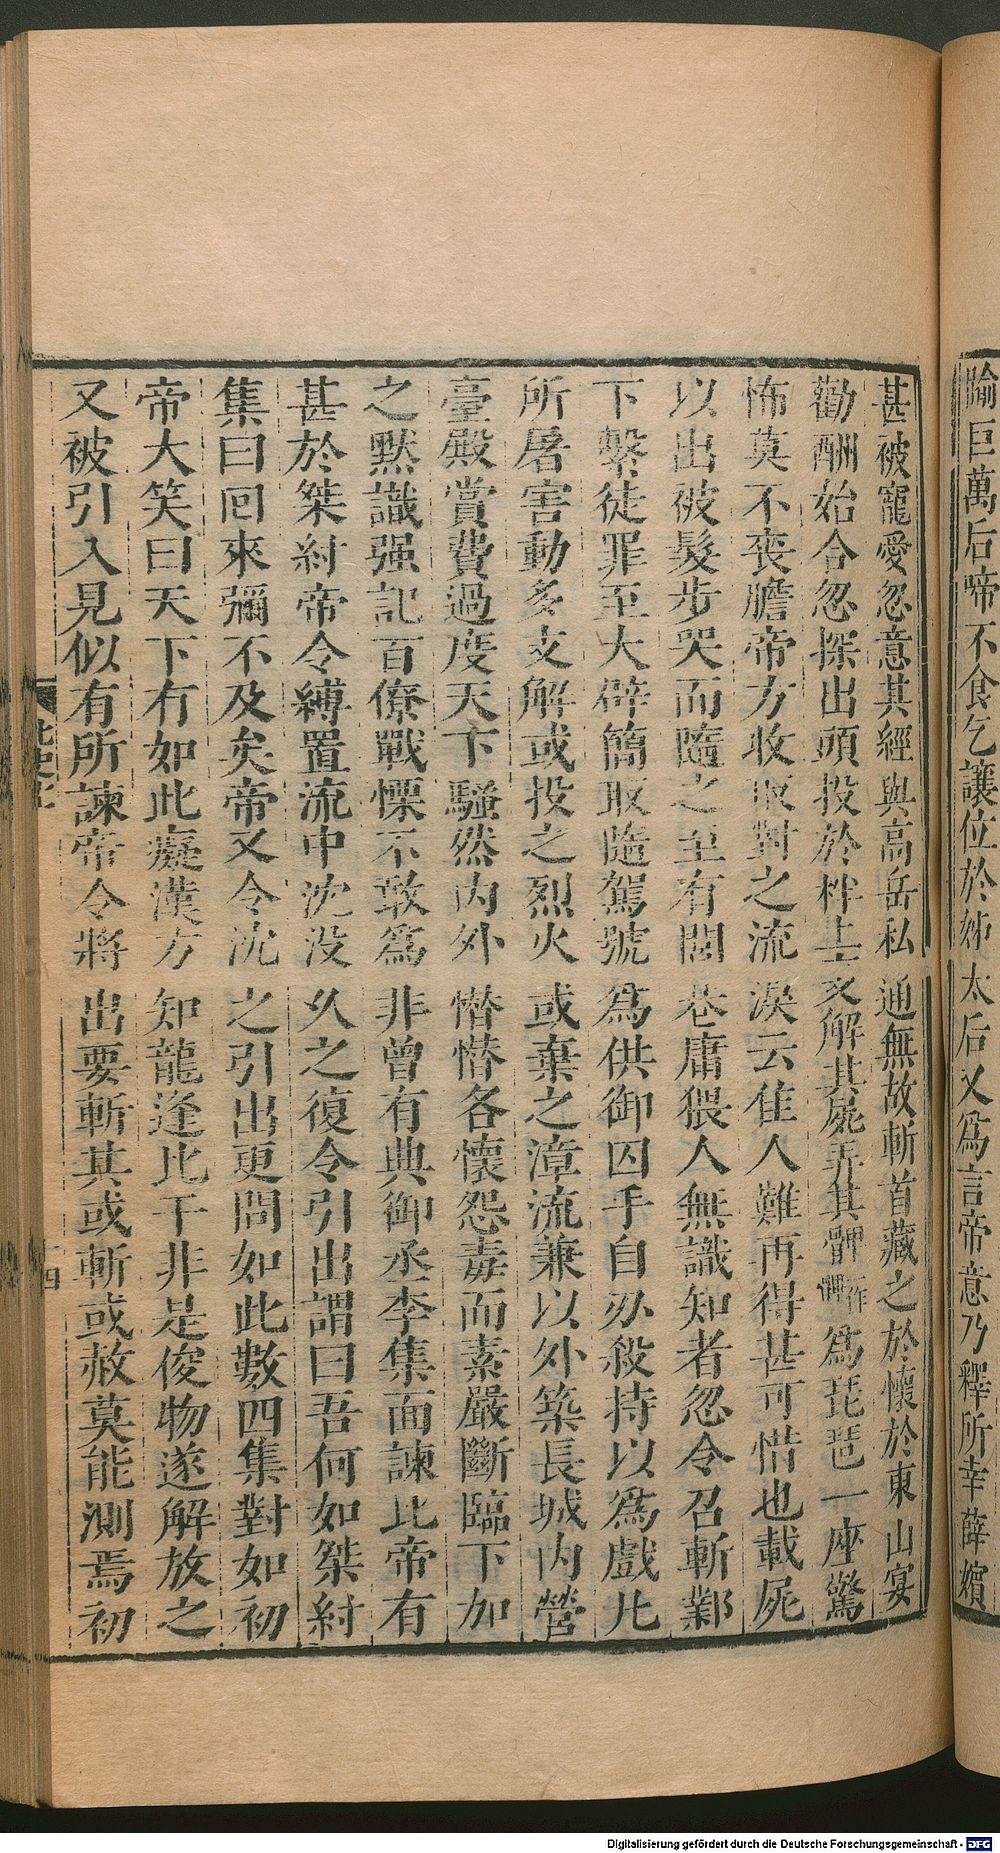 隃巨萬后啼不食乞讓位於姊太后又爲言帝意乃釋所幸薛嬪
甚被寵愛忽意其經與高岳私通無故斬首藏之於懷於東山宴
勸酬始合忽探出頭投於柈上支解其屍弄其髀䯗作爲琵琶一座驚
怖莫不喪膽帝方收取對之流淚云佳人難再得甚可惜也載屍
以出被髮步哭而隨之至有閭巷庸猥人無識知者忽令召斬鄴
下繫徒罪至大辟簡取隨駕號爲供御囚手自刃殺持以爲戲凡
所屠害動多支解或投之烈火或棄之漳流兼以外築長城內營
臺殿賞費過度天下騷然內外憯憯各懷怨毒而素嚴斷臨下加
之黙識强記百僚戰慄不敢爲非曾有典御丞李集面諫比帝有
甚於桀紂帝令縛置流中沈没久之復令引出謂曰吾何如桀紂
集曰囘來彌不及矣帝又令沈之引出更問如此數四集對如初
帝大笑曰天下有如此癡漢方知龍逢比干非是俊物遂解放之
又被引入見似有所諫帝令將出要斬其或斬或赦莫能測焉初
北史
四
Digitalisierung gefördert durch die Deutsche Forschungsgemeinschaft - DFG